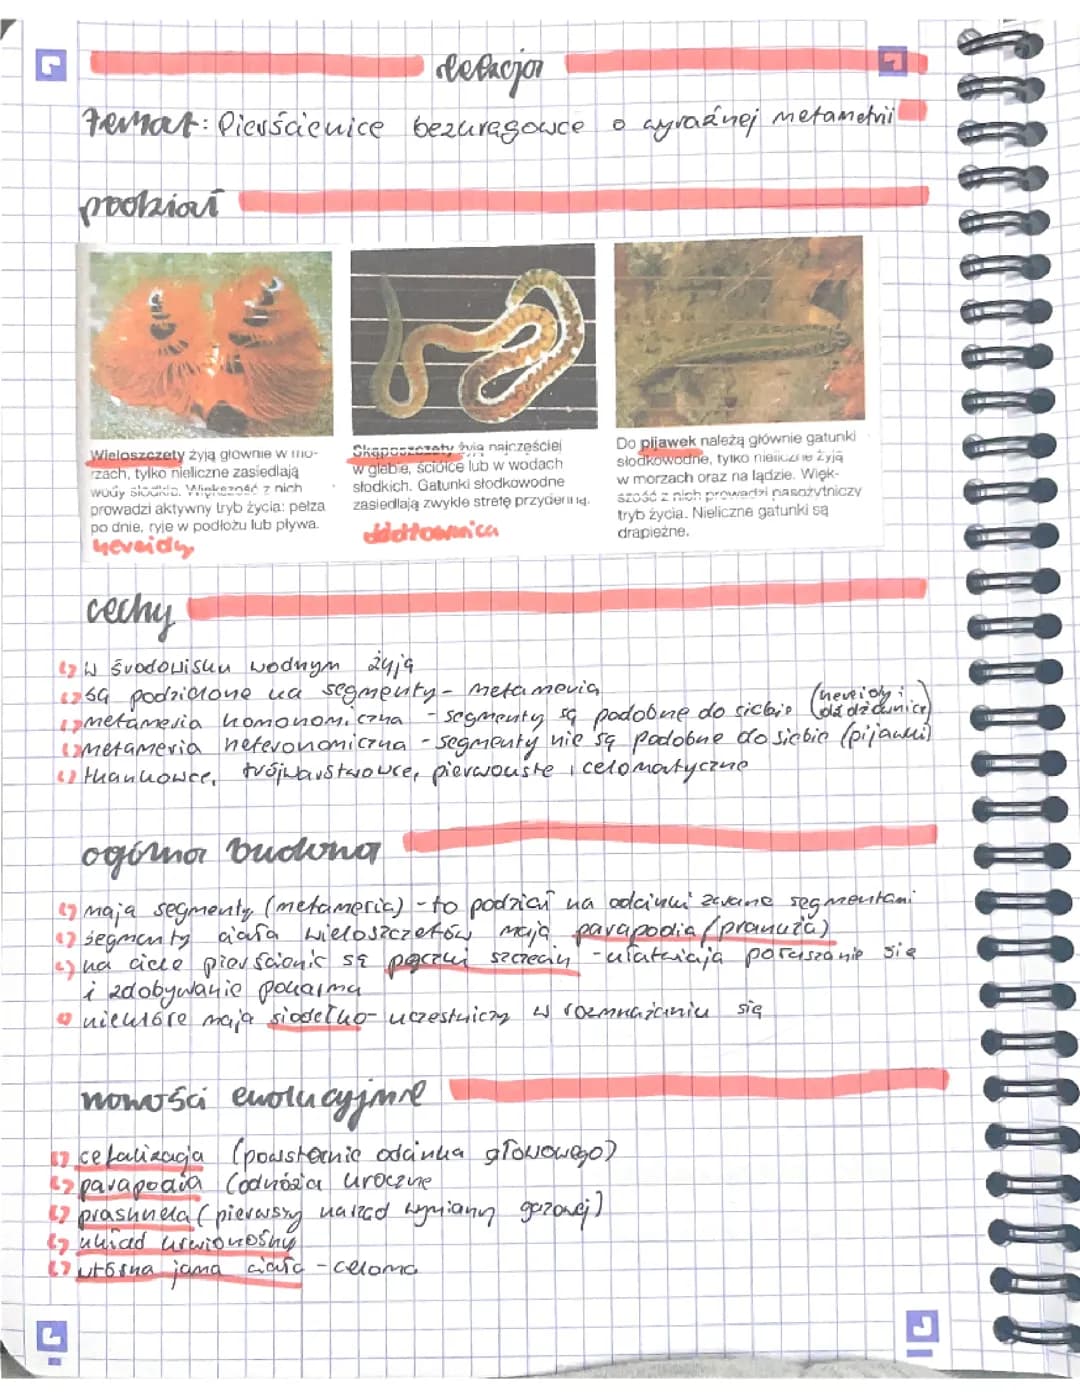 lekcja
temat: Pierścienice bezkręgowce o wyraźnej metamerii
podział
Wieloszczety żyją głównie w mo-
rzach, tylko nieliczne zasiedlają
wody słodkie. Większość z nich
prowadzi aktywny tryb życia: pełza
po dnie, ryje w podłożu lub pływa.
nereidy
Skąposzczety żyją najczęściej
w glebie, ściółce lub w wodach
słodkich. Gatunki słodkowodne
zasiedlają zwykle strefę przydenną.
dżdżownica
Do pijawek należą głównie gatunki
słodkowodne, tylko nieliczne żyją
w morzach oraz na lądzie. Więk-
szość z nich prowadzi pasożytniczy
tryb życia. Nieliczne gatunki są
drapieżne.
cechy
w środowisku wodnym żyją
są podzielone na segmenty - metameria
metameria homonomiczna - segmenty są podobne do siebie (nereidy i dżdżownice)
metameria heteronomiczna - segmenty nie są podobne do siebie (pijawki)
tkankowce, trójwarstwowce, pierwouste i celomatyczne
ogólna budowa
mają segmenty (metameria) - to podział na odcinki zwane segmentami
segmenty ciała wieloszczetów mają parapodia (pranóża)
na ciele pierścienic są pęczki szczecin - ułatwiają poruszanie się
i zdobywanie pokarmu
niektóre mają siodełko - uczestniczy w rozmnażaniu się
nowości ewolucyjne
cefalizacja (powstanie odcinka głowowego)
parapodia (odnóża kroczne
praskrzela (pierwszy narząd wymiany gazowej)
układ krwionośny
wtórna jama ciała - celoma